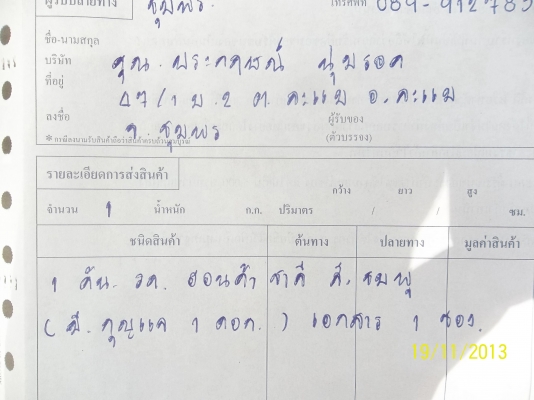 ผู้รับปลายทาง ชุมพร. โทรศัพท์
ชื่อ-นามสกุล
บริษัท คุณ.
ที่อยู่ 47/1 ม.2 ต.ละแม อ.ละแม
ลงชื่อ จ. ชุมพร ผู้รับของ
(ตัวบรรจง)
รายละเอียดการส่งสินค้า
กว้าง ยาว สูง
จำนวน 1 น้ำหนัก ก.ก. ปริมาตร / / ซม.
ชนิดสินค้า ต้นทาง ปลายทาง มูลค่าสินค้า
1 คัน. รถ. ฮอนด้า สี. ชมพู
(มี. กุญแจ 1 ดอก.) เอกสาร 1 ซอง.
19/11/2013